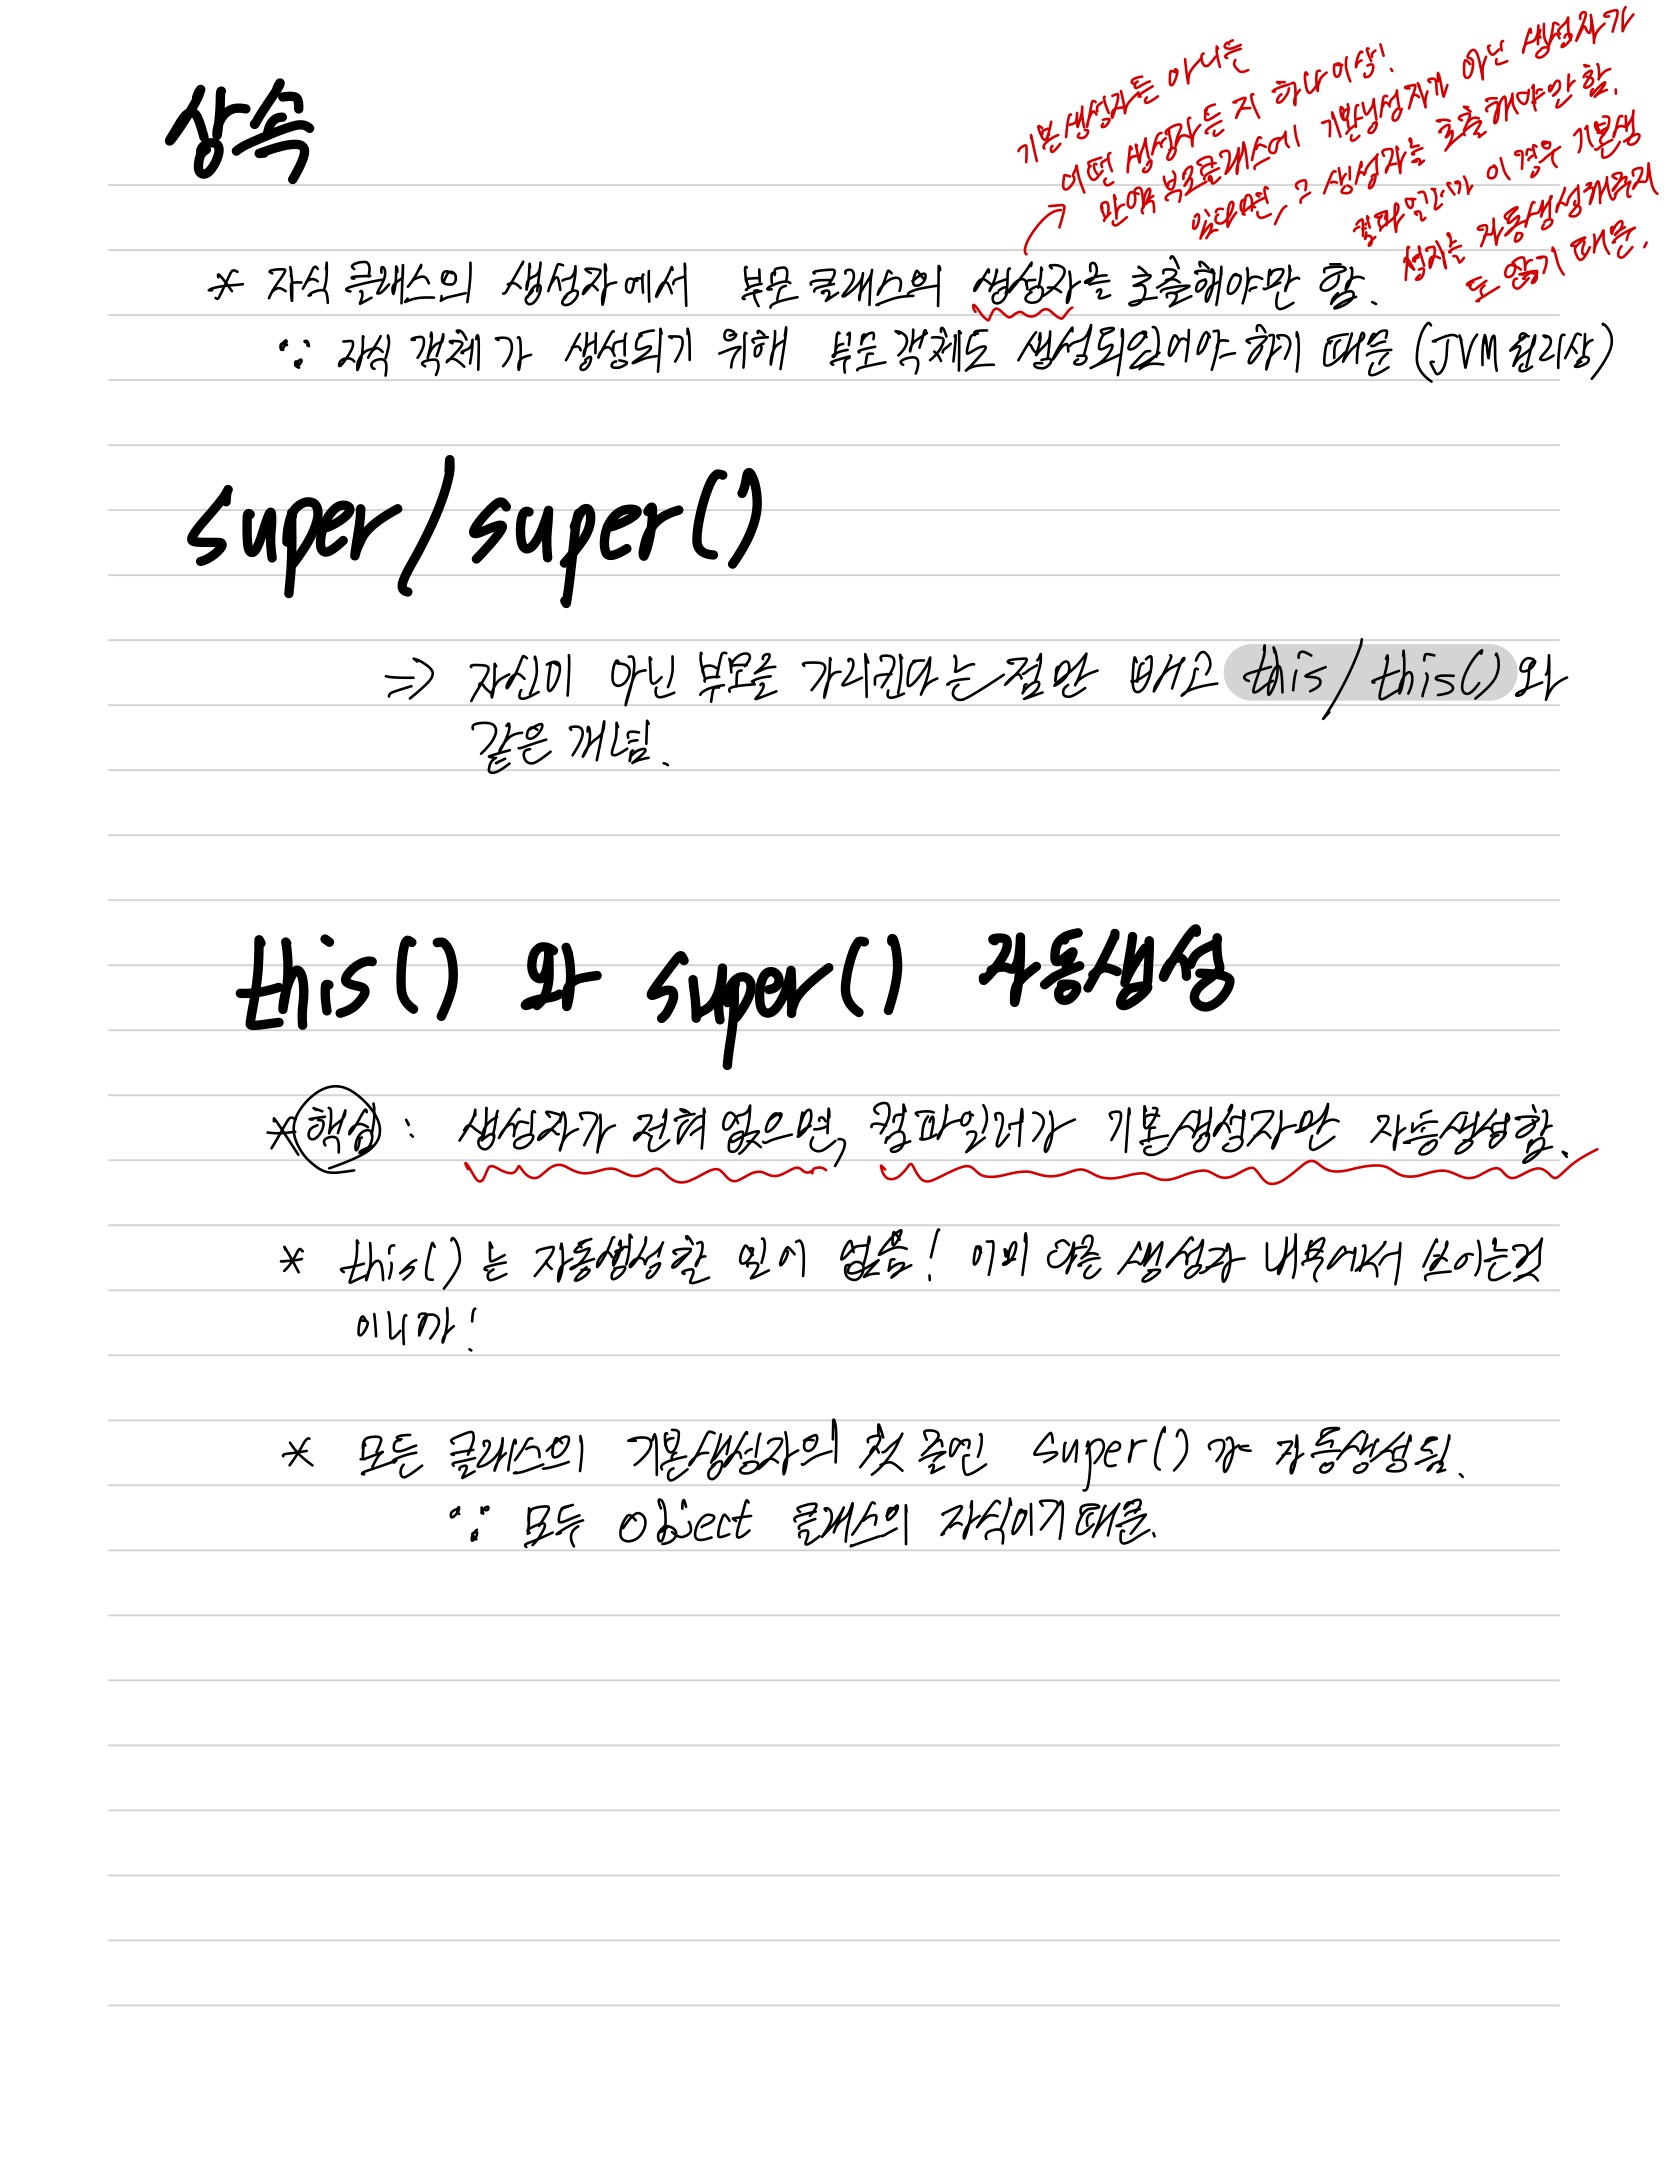 상속
기본생성자든 아니든
어떤 생성자든 지 하나이상!
만약 부모클래스에 기본생성자가 아닌 생성자가
있다면, 그 생성자를 호출해야만 함.
컴파일러가 이 경우 기본생
성자는 자동생성해주지
도 않기 때문.
* 자식 클래스의 생성자에서 부모 클래스의 생성자를 호출해야만 함.
∵ 자식 객체가 생성되기 위해 부모객체도 생성되있어야 하기 때문 (JVM 원리상)
super/super()
⇒ 자신이 아닌 부모를 가리킨다는 점만 빼고 this/this()와
같은 개념.
this() 와 super() 자동생성
* 핵심 : 생성자가 전혀 없으면, 컴파일러가 기본생성자만 자동생성함.
* this()는 자동생성할 일이 없음! 이미 다른 생성자 내부에서 쓰이는것
이니까!
* 모든 클래스의 기본생성자의 첫 줄엔 super()가 자동생성됨.
∵ 모두 Object 클래스의 자식이기 때문.